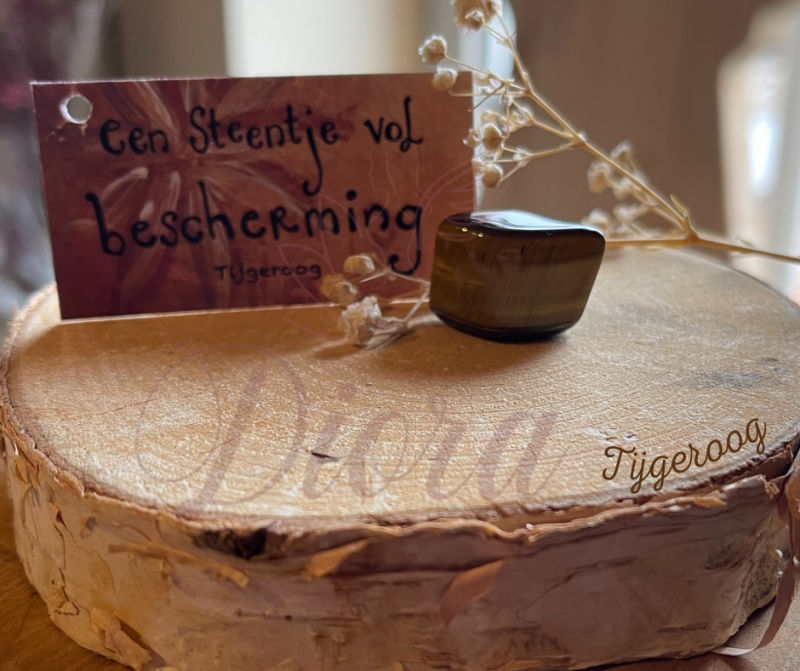 een Steentje vol
bescherming
Tijgeroog
Diora
Tijgeroog